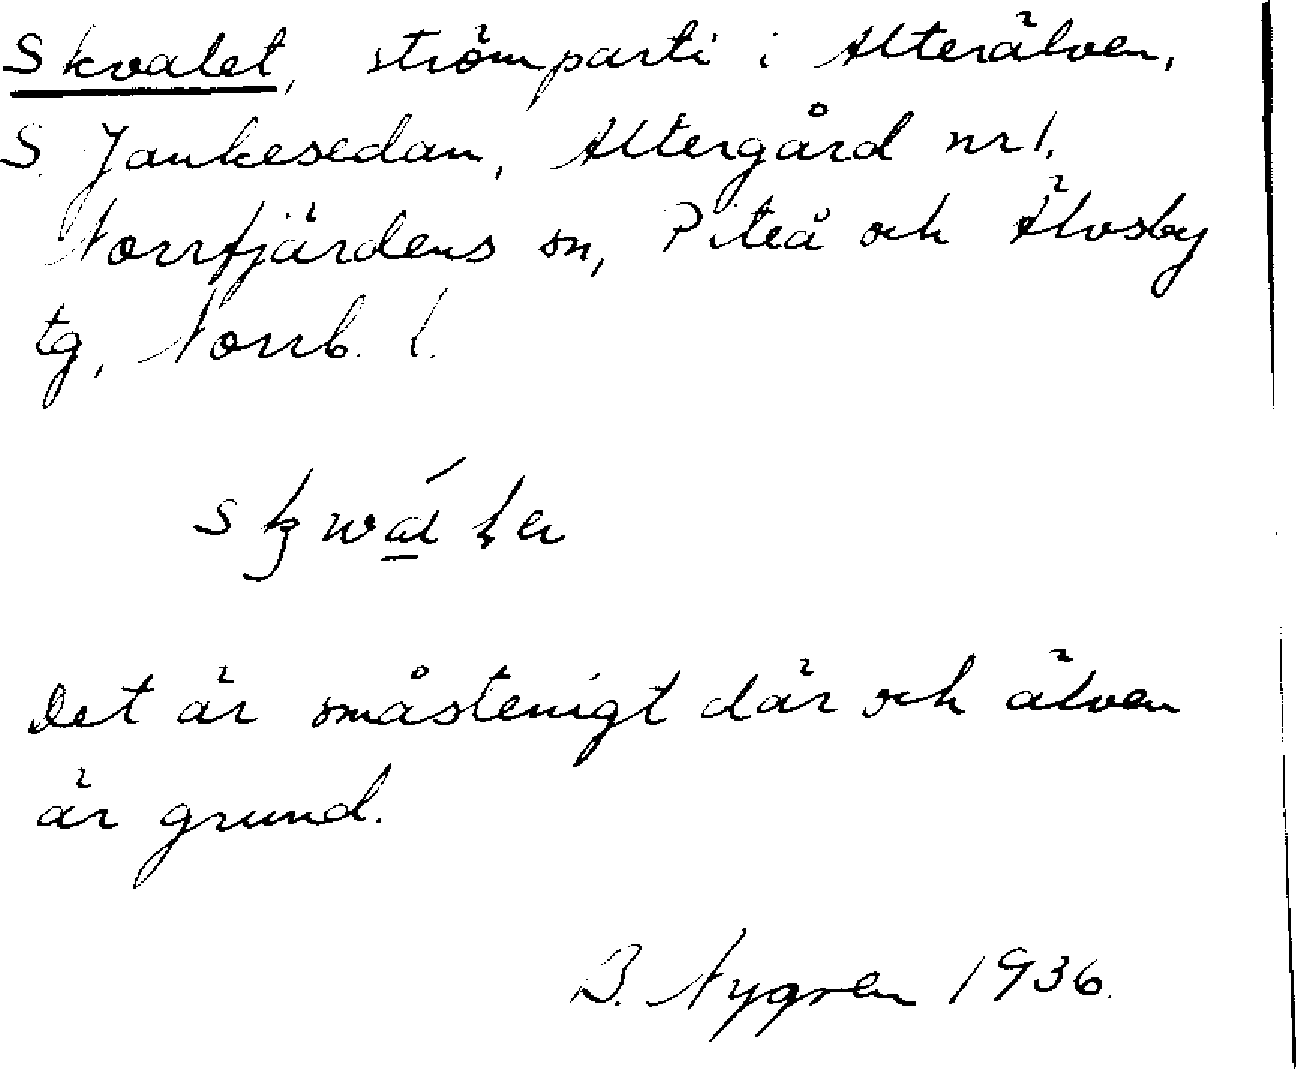 Skvalet, strömparti i Alterälven,
S. Jankesedan, Altergård nr 1.
Norrfjärdens sn, Piteå och Älvsby
tg, Norrb. l.
Det är småstenigt där och älven
är grund.
B. Nygren 1936.